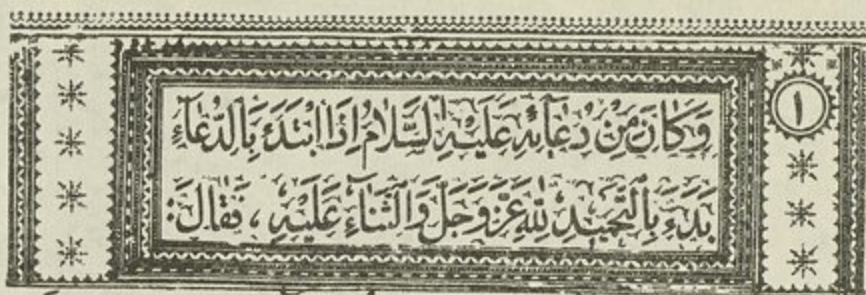 ١
وَكَانَ مِنْ دُعَآئِهِ عَلَيْهِ السَّلَامُ إِذَا ابْتَدَءَ بِالدُّعَآءِ
بَدَءَ بِالتَّحْمِيدِ لِلّٰهِ عَزَّ وَجَلَّ وَالثَّنَآءِ عَلَيْهِ ، فَقَالَ :